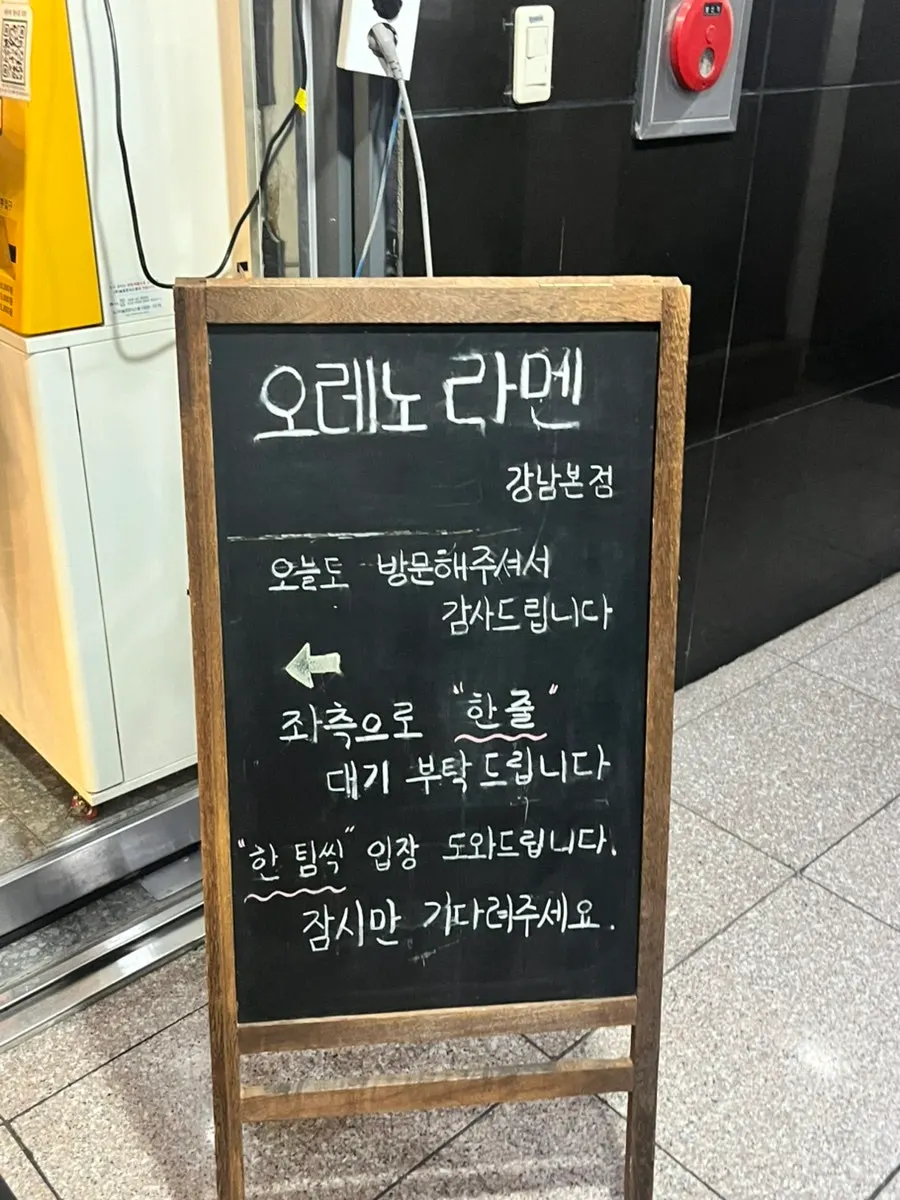 오레노 라멘
강남본점
오늘도 방문해주셔서
감사드립니다
좌측으로 "한줄"
대기 부탁드립니다
"한 팀씩" 입장 도와드립니다.
잠시만 기다려주세요.